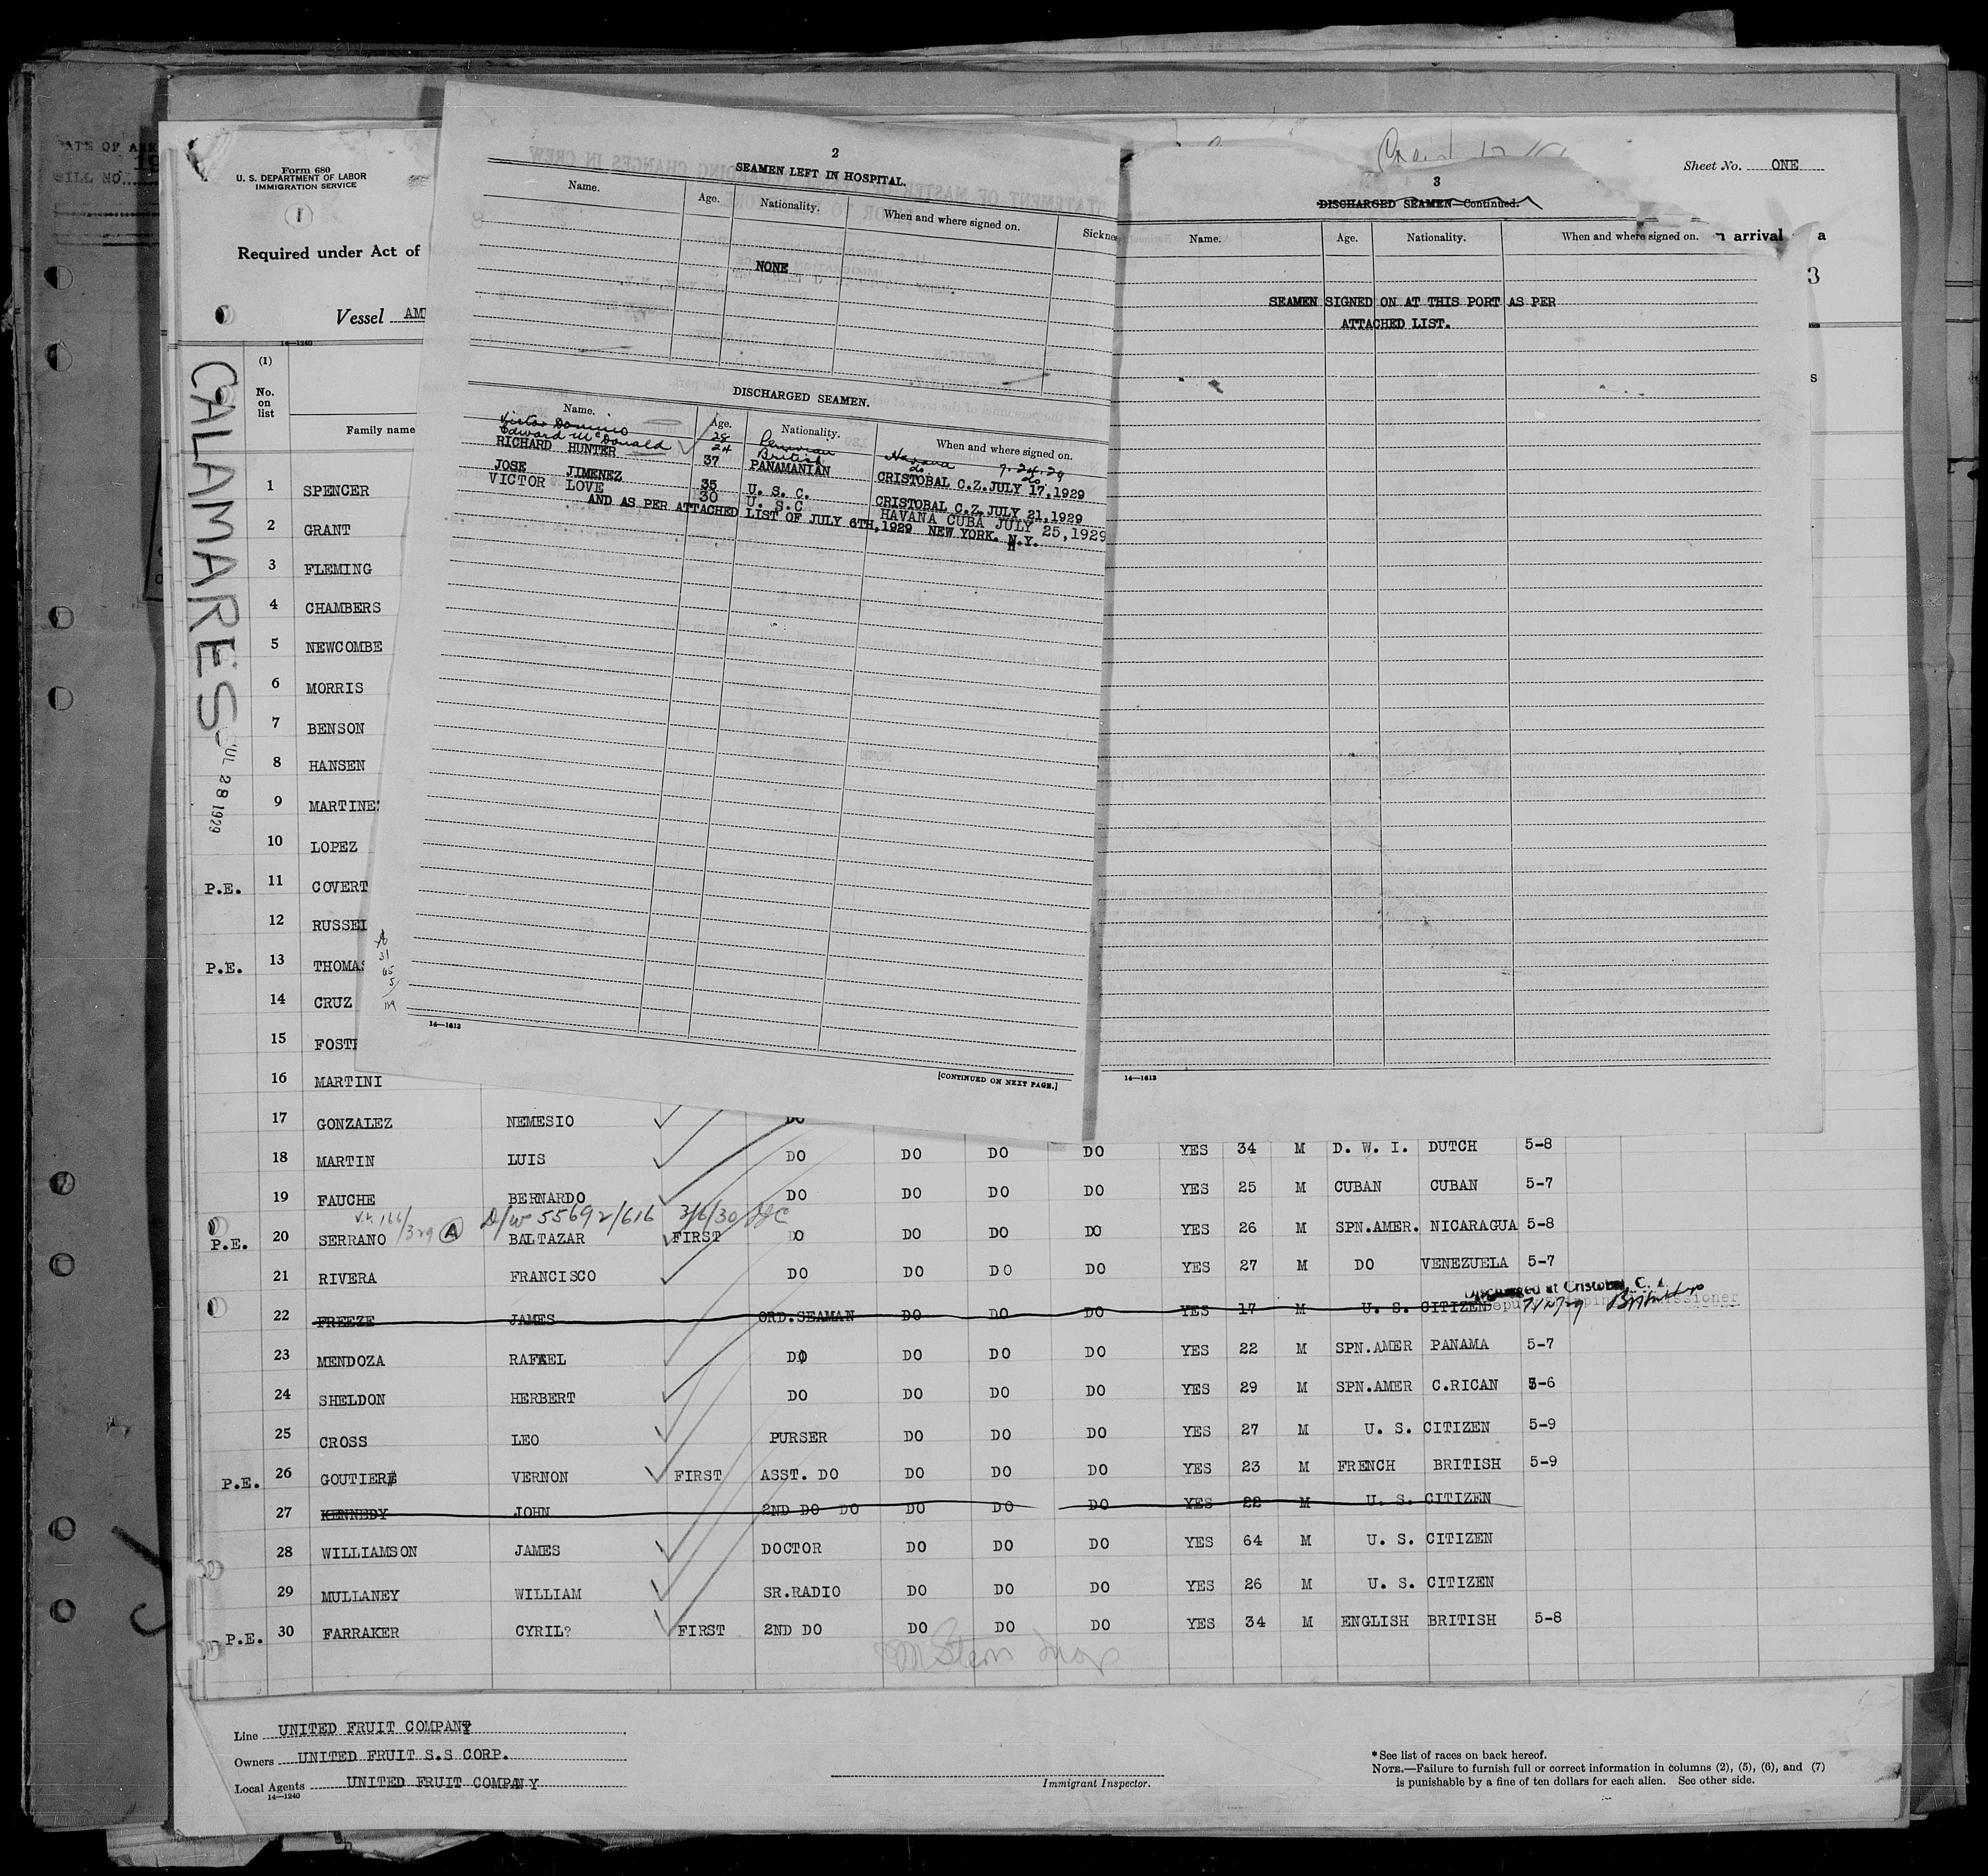 Form 680
U. S. DEPARTMENT OF LABOR
IMMIGRATION SERVICE
1
Required under Act of
Vessel AM
14—1240
CALAMARES
UL 28 1929
(1)
No. on list
Family name
1 SPENCER
2 GRANT
3 FLEMING
4 CHAMBERS
5 NEWCOMBE
6 MORRIS
7 BENSON
8 HANSEN
9 MARTINE
10 LOPEZ
P.E. 11 COVERT
12 RUSSEL
P.E. 13 THOMAS
14 CRUZ
15 FOST
16 MARTINI
2
SEAMEN LEFT IN HOSPITAL.
Name. Age. Nationality. When and where signed on. Sickne
NONE
DISCHARGED SEAMEN.
Name. Age. Nationality. When and where signed on.
Victor Dominio 28 Peruvian Havana 7.24.29
Edward McDonald 24 British do do
RICHARD HUNTER 37 PANAMANIAN CRISTOBAL C.Z. JULY 17, 1929
JOSE JIMENEZ 35 U. S. C. CRISTOBAL C.Z. JULY 21, 1929
VICTOR LOVE 30 U. S. C HAVANA CUBA JULY 25, 1929
AND AS PER ATTACHED LIST OF JULY 6TH, 1929 NEW YORK. N.Y.
31
65
5
14—1613
[CONTINUED ON NEXT PAGE.]
Sheet No. ONE
3
DISCHARGED SEAMEN—Continued.
Name. Age. Nationality. When and where signed on.
n arrival a
3
s
SEAMEN SIGNED ON AT THIS PORT AS PER
ATTACHED LIST.
14—1613
17 GONZALEZ NEMESIO DO
18 MARTIN LUIS DO DO DO DO YES 34 M D. W. I. DUTCH 5-8
19 FAUCHE BERNARDO DO DO DO DO YES 25 M CUBAN CUBAN 5-7
166/329 A D/W 55692/616 3/6/30
P.E. 20 SERRANO BALTAZAR FIRST DO DO DO DO YES 26 M SPN.AMER. NICARAGUA 5-8
21 RIVERA FRANCISCO DO DO DO DO YES 27 M DO VENEZUELA 5-7
Discharged at Cristobal, C. Z.
22 FREEZE JAMES ORD.SEAMAN DO DO DO YES 17 M U. S. CITIZEN
23 MENDOZA RAFAEL DO DO DO DO YES 22 M SPN.AMER PANAMA 5-7
24 SHELDON HERBERT DO DO DO DO YES 29 M SPN.AMER C.RICAN 5-6
25 CROSS LEO PURSER DO DO DO YES 27 M U. S. CITIZEN 5-9
P.E. 26 GOUTIER VERNON FIRST ASST. DO DO DO DO YES 23 M FRENCH BRITISH 5-9
27 KENNEDY JOHN 2ND DO DO DO DO DO YES 22 M U. S. CITIZEN
28 WILLIAMSON JAMES DOCTOR DO DO DO YES 64 M U. S. CITIZEN
29 MULLANEY WILLIAM SR.RADIO DO DO DO YES 26 M U. S. CITIZEN
P.E. 30 FARRAKER CYRIL? FIRST 2ND DO DO DO DO YES 34 M ENGLISH BRITISH 5-8
Line UNITED FRUIT COMPANY
Owners UNITED FRUIT S.S CORP.
Local Agents UNITED FRUIT COMPANY
14—1240
Immigrant Inspector.
* See list of races on back hereof.
NOTE.—Failure to furnish full or correct information in columns (2), (5), (6), and (7)
is punishable by a fine of ten dollars for each alien. See other side.